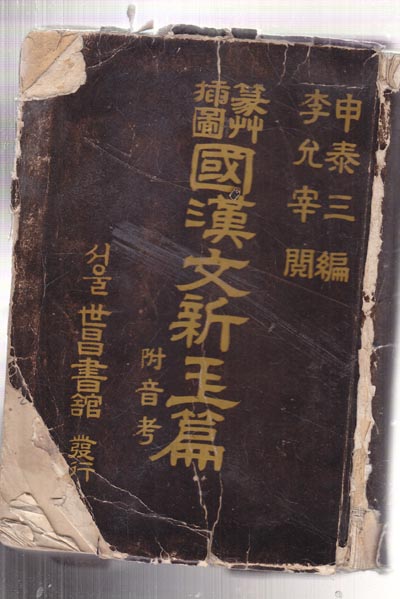 申泰三 編
李允宰 閱
篆艸
揷圖
國漢文新玉篇
附音考
서울 世昌書館 發行